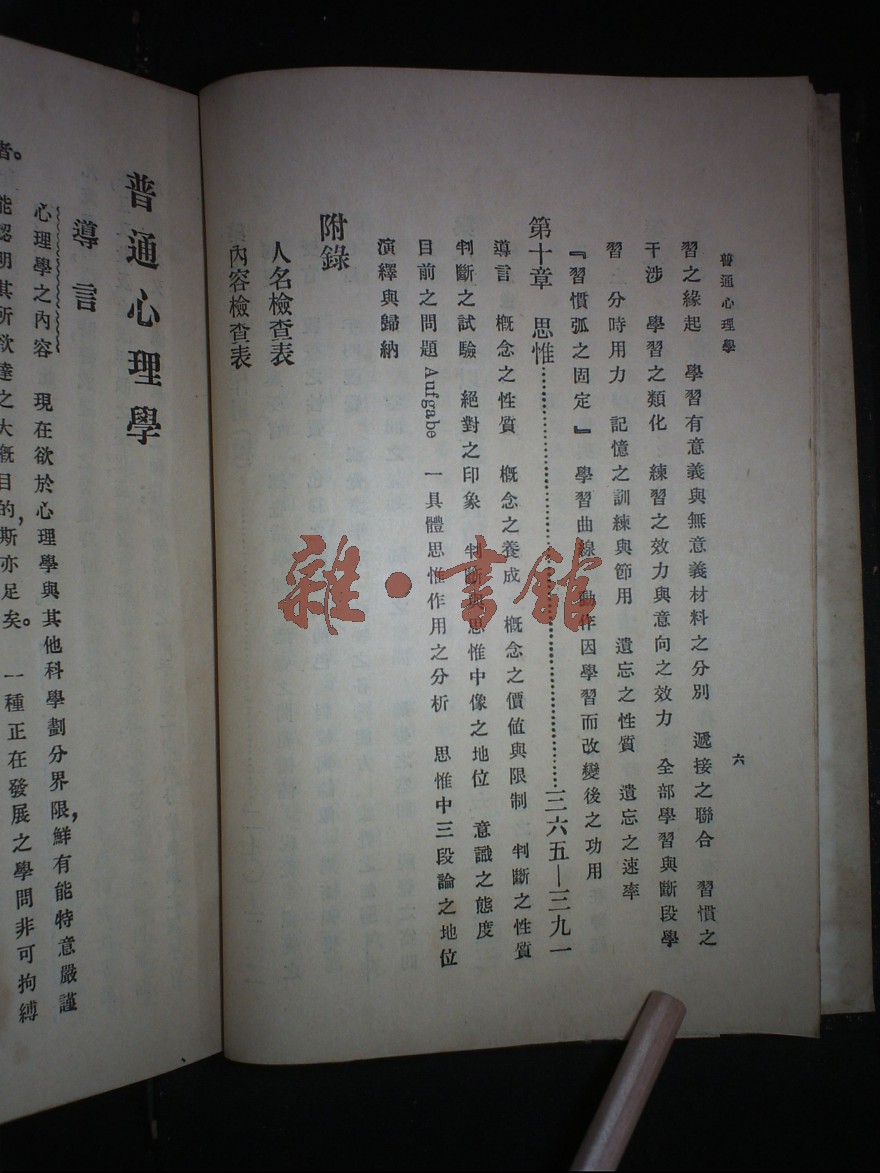 普通心理學
六
習之緣起 學習有意義與無意義材料之分別 遞接之聯合 習慣之
干涉 學習之類化 練習之效力與意向之效力 全部學習與斷段學
習 分時用力 記憶之訓練與節用 遺忘之性質 遺忘之速率
『習慣弧之固定』 學習曲線 動作因學習而改變後之功用
第十章 思惟……三六五—三九一
導言 概念之性質 概念之養成 概念之價值與限制 判斷之性質
判斷之試驗 絕對之印象 判斷與思惟中像之地位 意識之態度
目前之問題 Aufgabe 一具體思惟作用之分析 思惟中三段論之地位
演繹與歸納
附錄
人名檢查表
內容檢查表
普通心理學
導言
心理學之內容 現在欲於心理學與其他科學劃分界限,鮮有能特意嚴謹
者。能認明其所欲達之大概目的,斯亦足矣。一種正在發展之學問非可拘縛
雜·書館